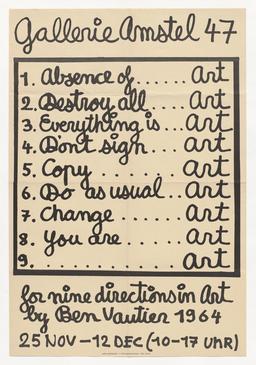 Gallerie Amstel 47
1. Absence of...... Art
2. Destroy all.... Art
3. Everything is... Art
4. Dont sign.... Art
5. Copy....... Art
6. Do as usual.. Art
7. Change...... Art
8. You are..... Art
9. .......... Art
for nine directions in Art
by Ben Vautier 1964
25 NOV-12 DEC (10-17 UHR)